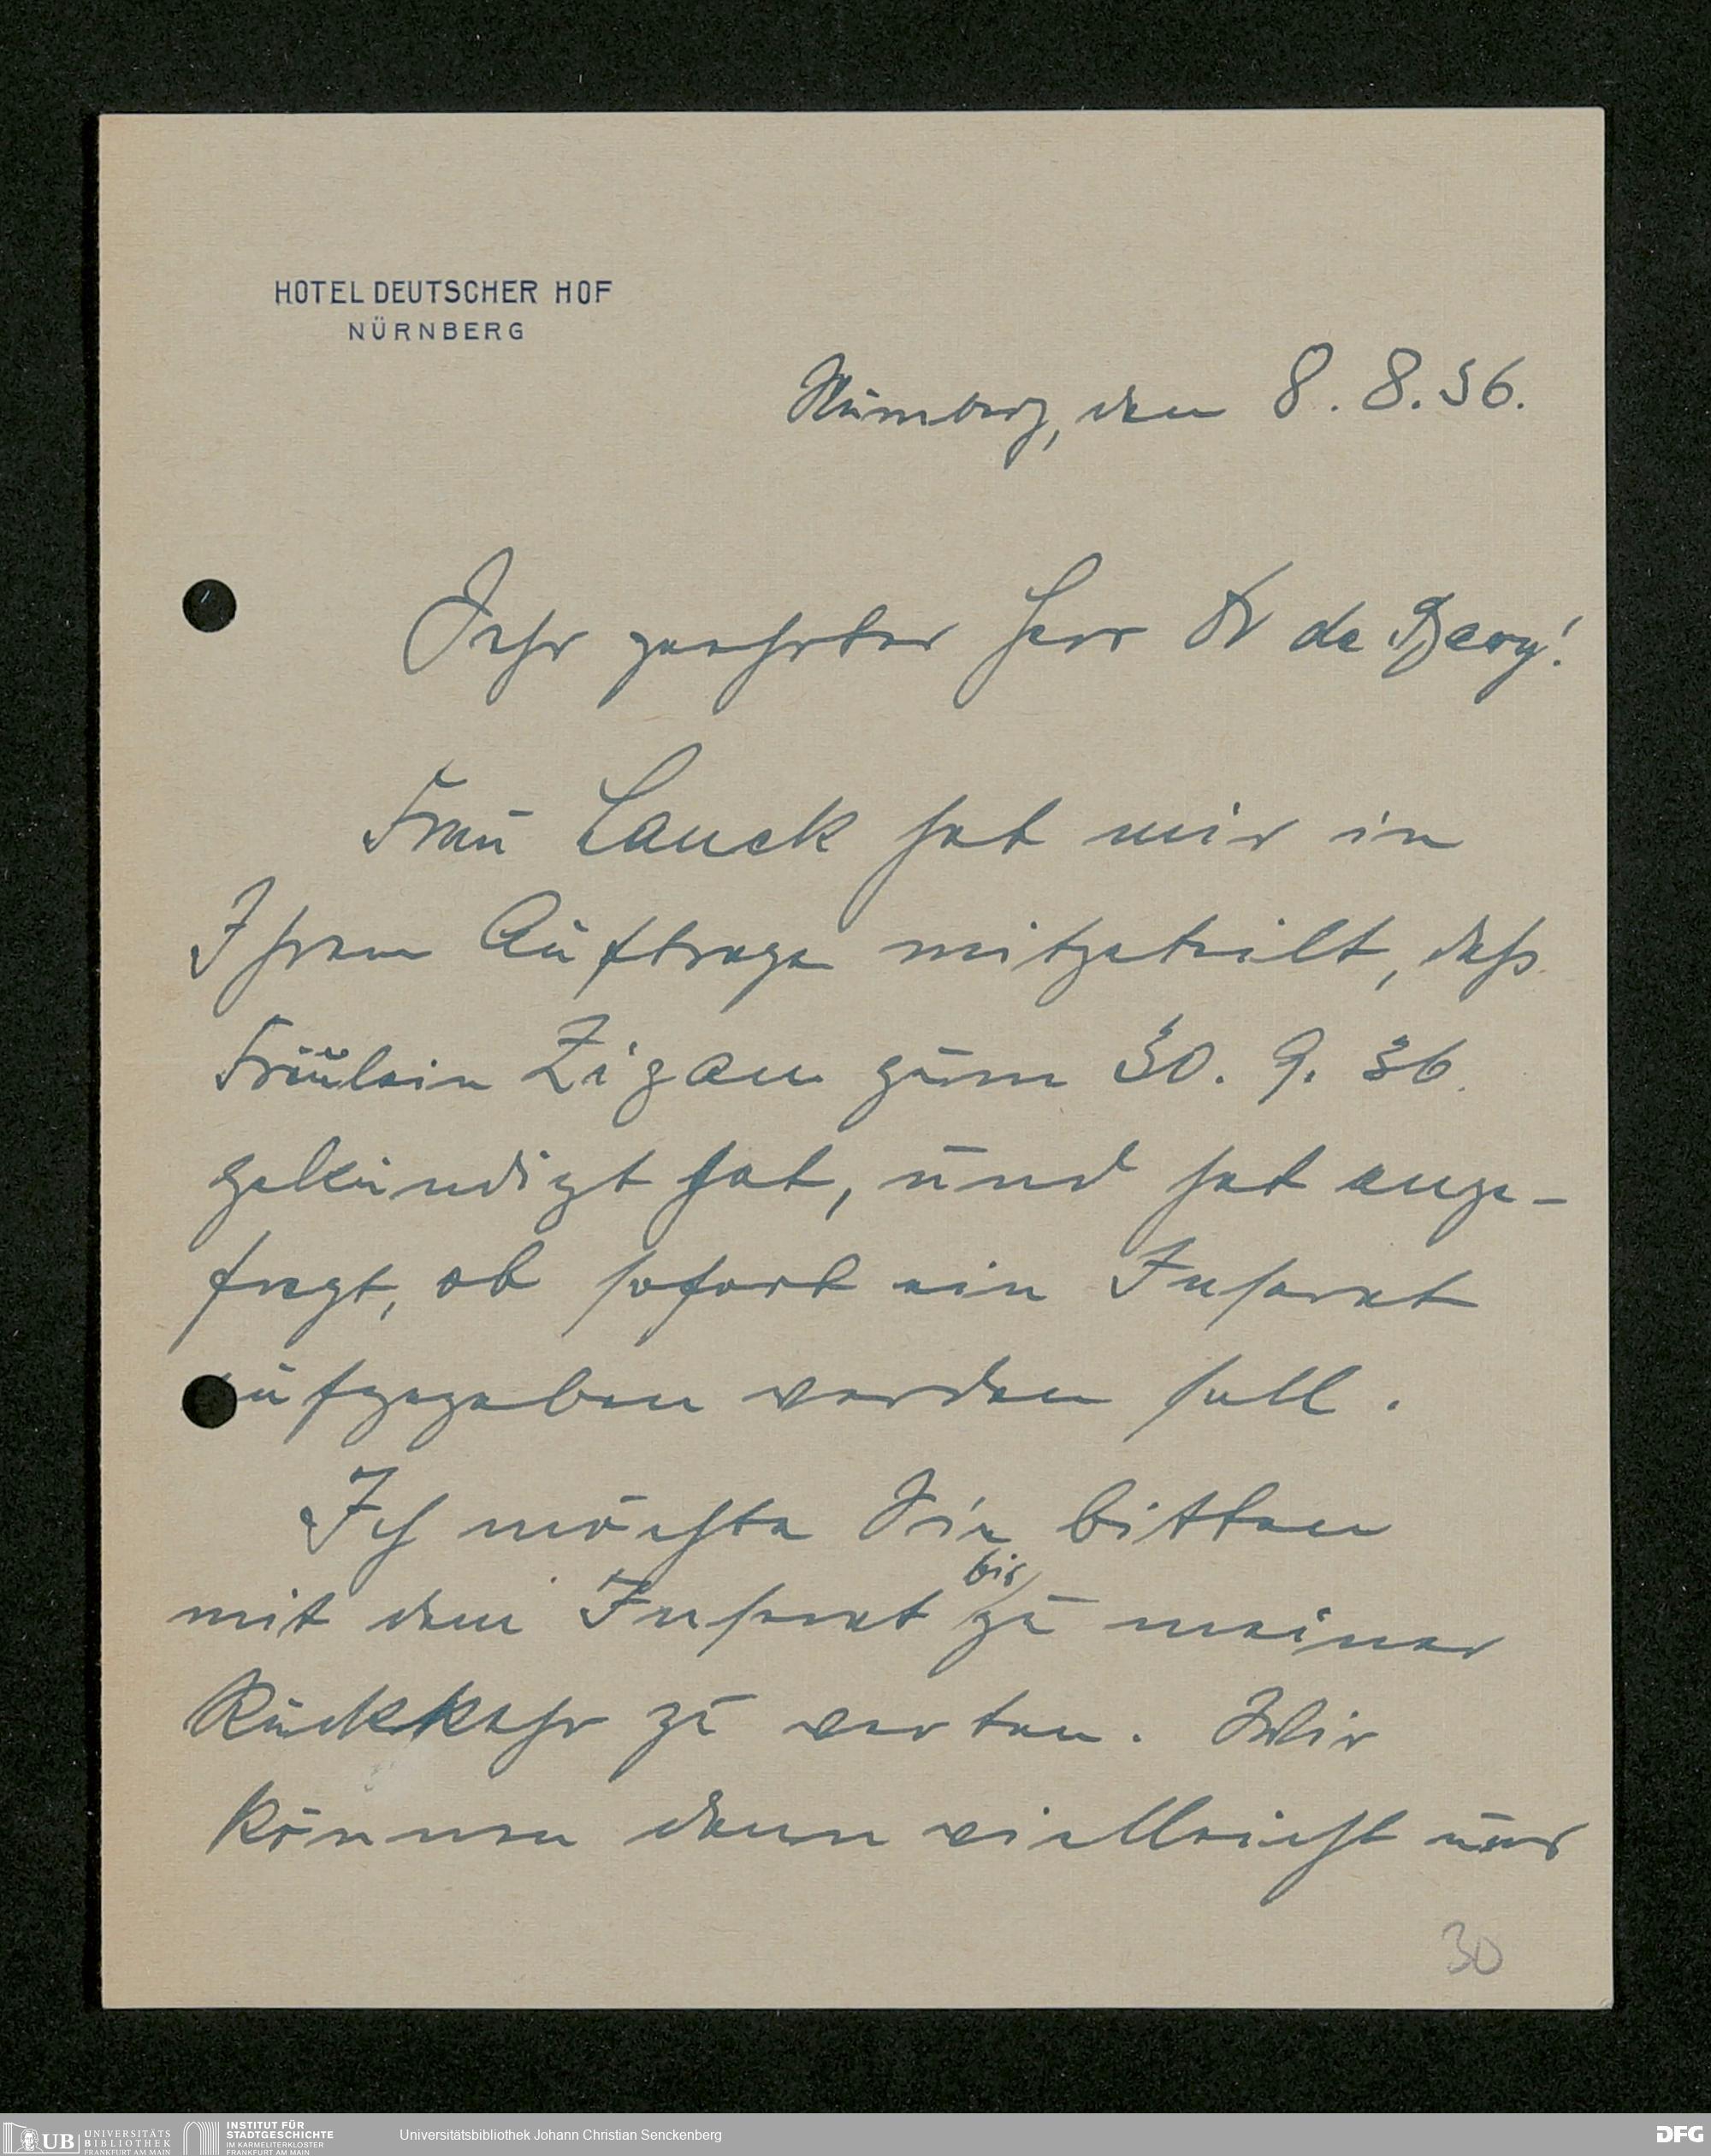 HOTEL DEUTSCHER HOF
NÜRNBERG
Nürnberg, den 8. 8. 36.
Sehr geehrter Herr Dr de Bary!
Frau Lauck hat mir in
Ihrem Auftrage mitgeteilt, daß
Fräulein Zigan zum 30. 9. 36.
gekündigt hat, und hat ange-
fragt, ob sofort ein Inserat
aufgegeben werden soll.
Ich möchte Sie bitten
mit dem Inserat bis zu meiner
Rückkehr zu warten. Wir
können dann vielleicht
30
UB UNIVERSITÄTS
BIBLIOTHEK
FRANKFURT AM MAIN
INSTITUT FÜR
STADTGESCHICHTE
IM KARMELITERKLOSTER
FRANKFURT AM MAIN
Universitätsbibliothek Johann Christian Senckenberg
DFG